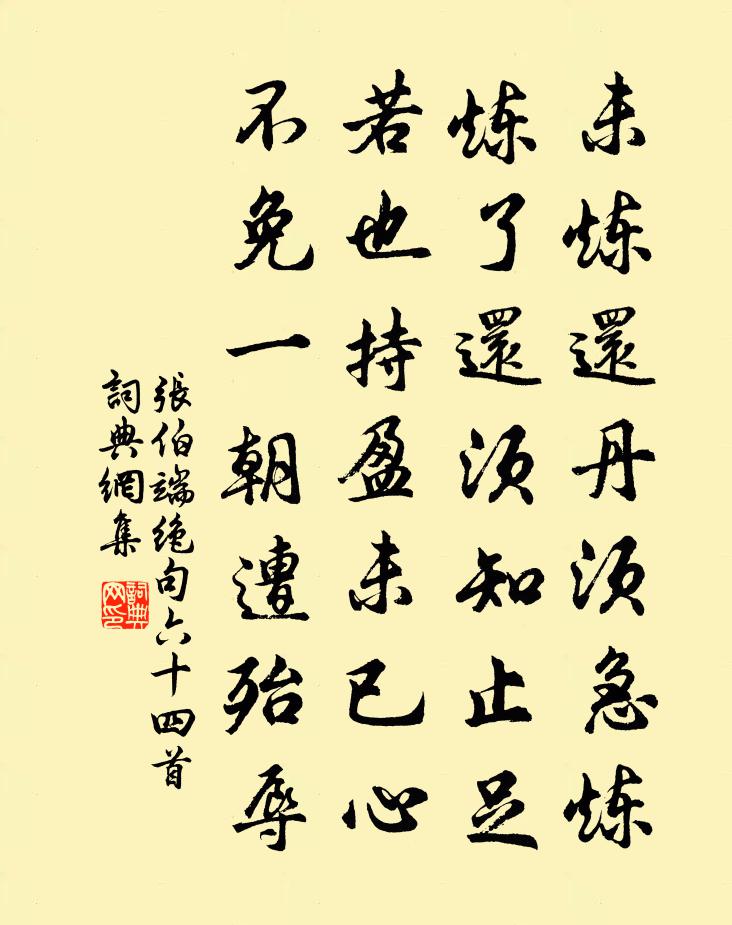 未炼還丹須急炼
炼了還須知止足
若也持盈未已心
不免一朝遭殆辱
張伯端绝句六十四首
詞典網集
詞典
网印